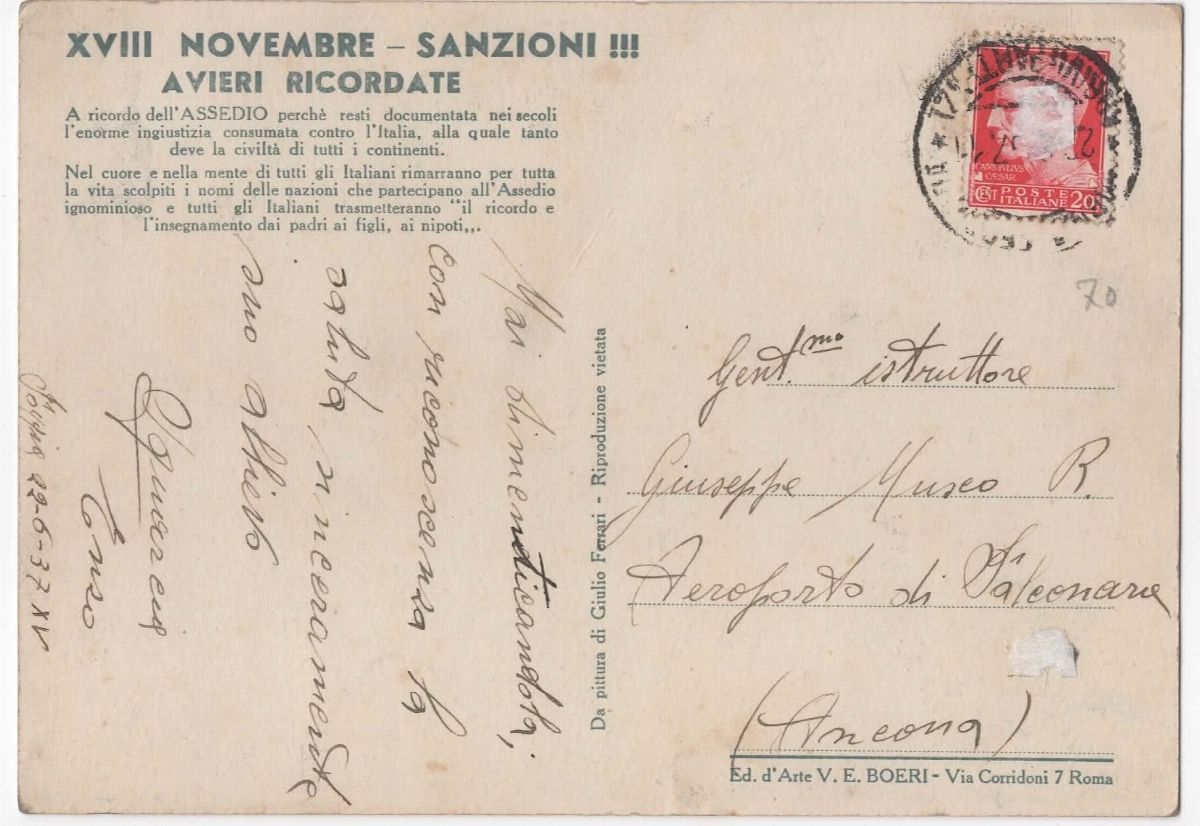 XVIII NOVEMBRE – SANZIONI !!!
AVIERI RICORDATE
A ricordo dell'ASSEDIO perchè resti documentata nei secoli
l'enorme ingiustizia consumata contro l'Italia, alla quale tanto
deve la civiltà di tutti i continenti.
Nel cuore e nella mente di tutti gli Italiani rimarranno per tutta
la vita scolpiti i nomi delle nazioni che partecipano all'Assedio
ignominioso e tutti gli Italiani trasmetteranno "il ricordo e
l'insegnamento dai padri ai figli, ai nipoti„.
Mai dimenticandola,
con riconoscenza la
saluta sinceramente
suo allievo
Enzo
22-6-37 XV
Da pittura di Giulio Ferrari - Riproduzione vietata
CAIVS IVLIVS
CAESAR
CENT POSTE
ITALIANE 20
70
Gent.mo istruttore
Giuseppe Museo R.
Aeroporto di Falconara
(Ancona)
Ed. d'Arte V. E. BOERI - Via Corridoni 7 Roma